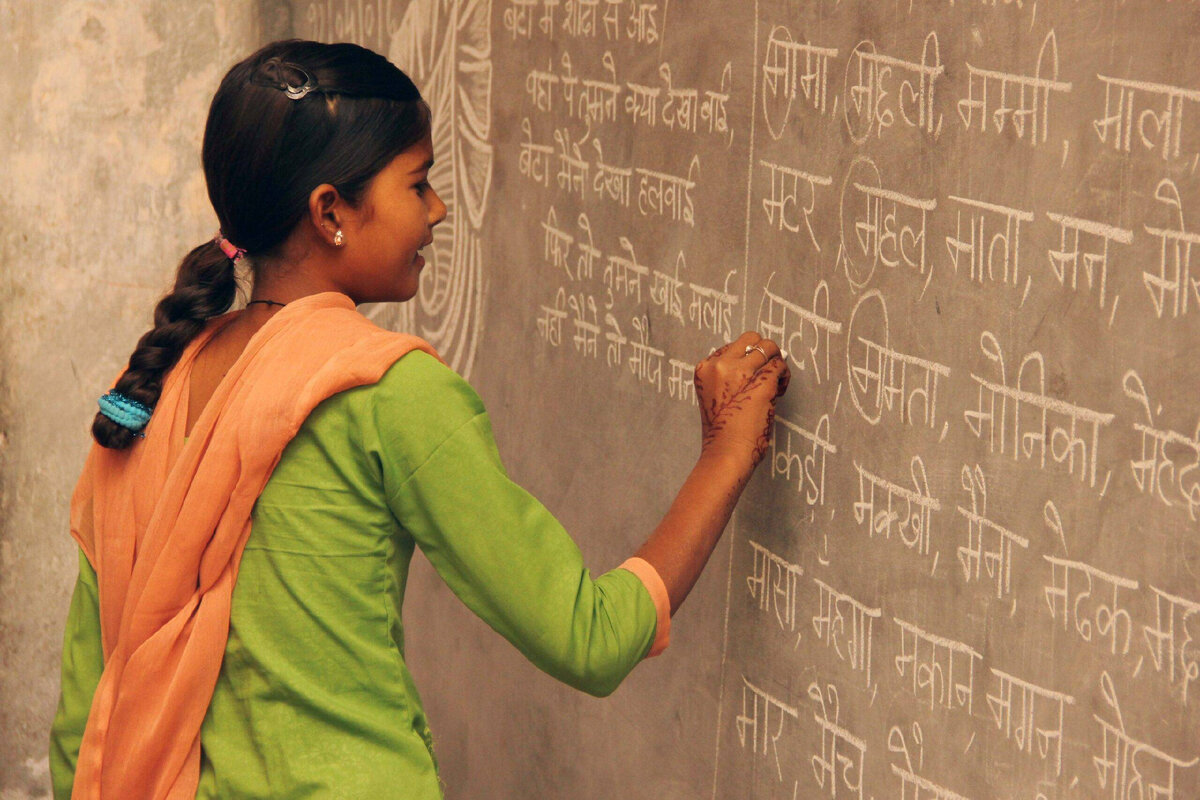 बेटा मैं शादी से आई
वहां पे तुमने क्या देखा बाई,
बेटा मैंने देखा हलवाई
फिर तो तुमने खाई मलाई
नहीं मैंने तो मौज
मामा, मछली, मम्मी, माला
मटर, महल, माता, मन,
मटरी, ममता, मोनिका,
मकड़ी, मक्खी, मैना, मेंढक,
मासा, महंगा, मकान, मगन,
मार, मैच, मोहन